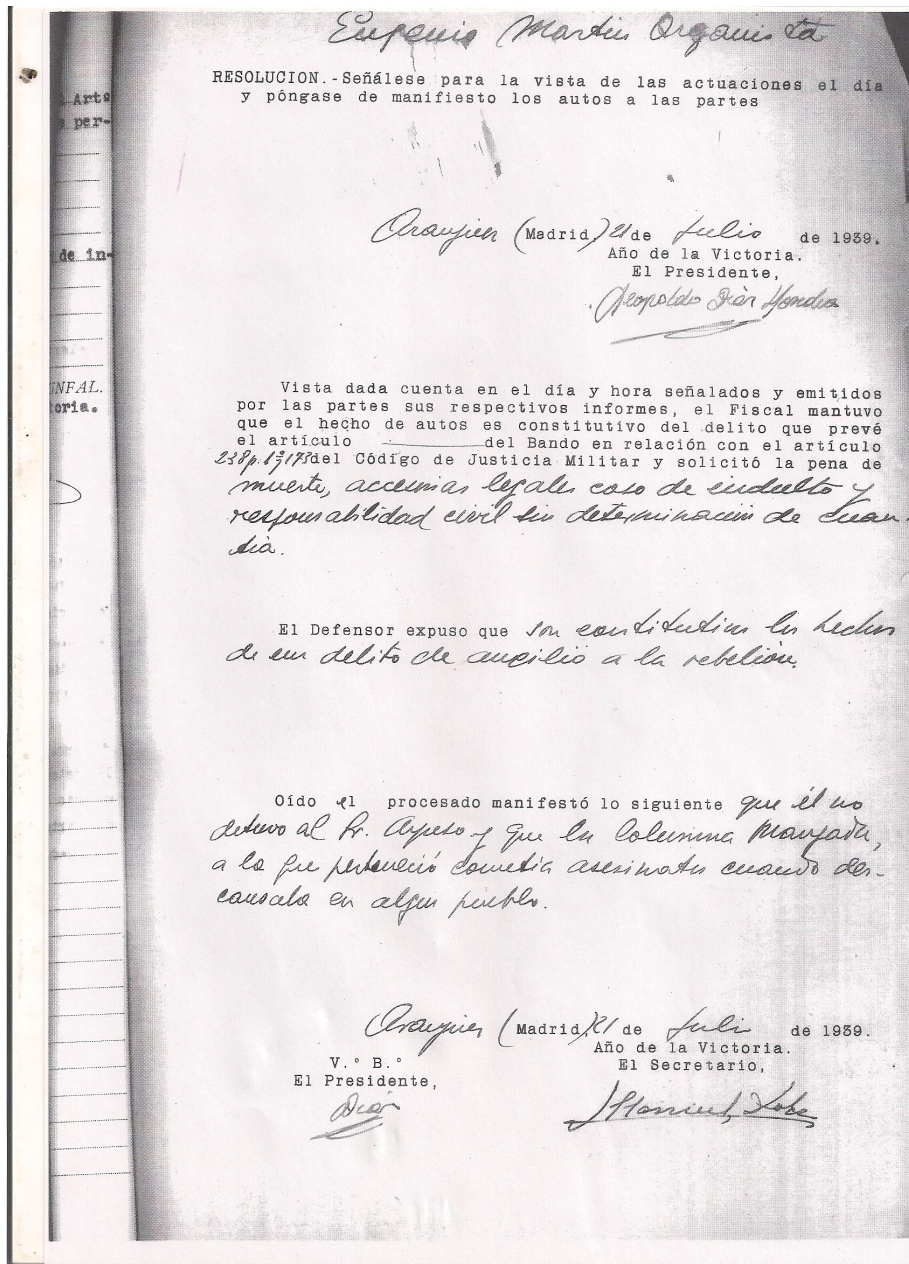 Eugenio Martin Organista
RESOLUCION.-Señálese para la vista de las actuaciones el día
y póngase de manifiesto los autos a las partes
Arto
per-
de in-
NFAL.
oria.
Aranjuez (Madrid) 21 de Julio de 1939.
Año de la Victoria.
El Presidente,
Leopoldo Diaz
Vista dada cuenta en el día y hora señalados y emitidos
por las partes sus respectivos informes, el Fiscal mantuvo
que el hecho de autos es constitutivo del delito que prevé
el artículo del Bando en relación con el artículo
238 p. 1º y 173 del Código de Justicia Militar y solicitó la pena de
muerte, accesorias legales caso de indulto y
responsabilidad civil sin determinación de cuan-
tia.
El Defensor expuso que son constitutivos los hechos
de un delito de auxilio a la rebelión.
Oído el procesado manifestó lo siguiente que él no
detuvo al Sr. y que la Columna Mangada,
a la que perteneció cometia asesinatos cuando des-
cansaba en algun pueblo.
Aranjuez (Madrid) 21 de Julio de 1939.
Año de la Victoria.
V.º B.º
El Secretario,
El Presidente,
Diaz